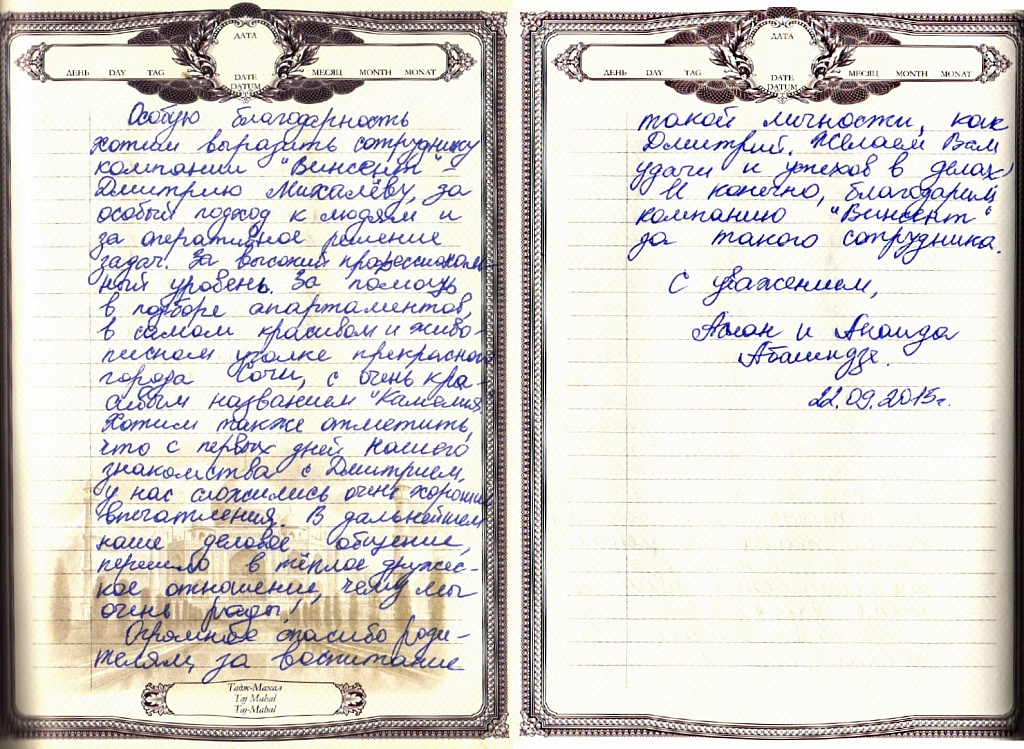 ДАТА
ДЕНЬ DAY TAG
DATE
DATUM
МЕСЯЦ MONTH MONAT
Особую благодарность
хотим выразить сотруднику
компании "Винсент" -
Дмитрию Михалёву, за
особый подход к людям и
за оперативное решение
задач. За высокий профессиональ
ный уровень. За помощь
в подборе апартаментов,
в самом красивом и живо-
писном уголке прекрасного
города Сочи, с очень кра-
сивым названием "Камелия".
Хотим также отметить,
что с первых дней нашего
знакомства с Дмитрием,
у нас сложились очень хорошие
впечатления. В дальнейшем
наше деловое общение,
перешло в тёплое дружес-
кое отношение, чему мы
очень рады!
Огромное спасибо роди-
телям, за воспитание
Тадж-Махал
Taj Mahal
Taj-Mahal
ДАТА
ДЕНЬ DAY TAG
DATE
DATUM
МЕСЯЦ MONTH MONAT
такой личности, как
Дмитрий. Желаем Вам
удачи и успехов в делах!
И конечно, благодарим
компанию "Винсент"
за такого сотрудника.
С уважением,
Аслан и Анаида
22.09.2015г.